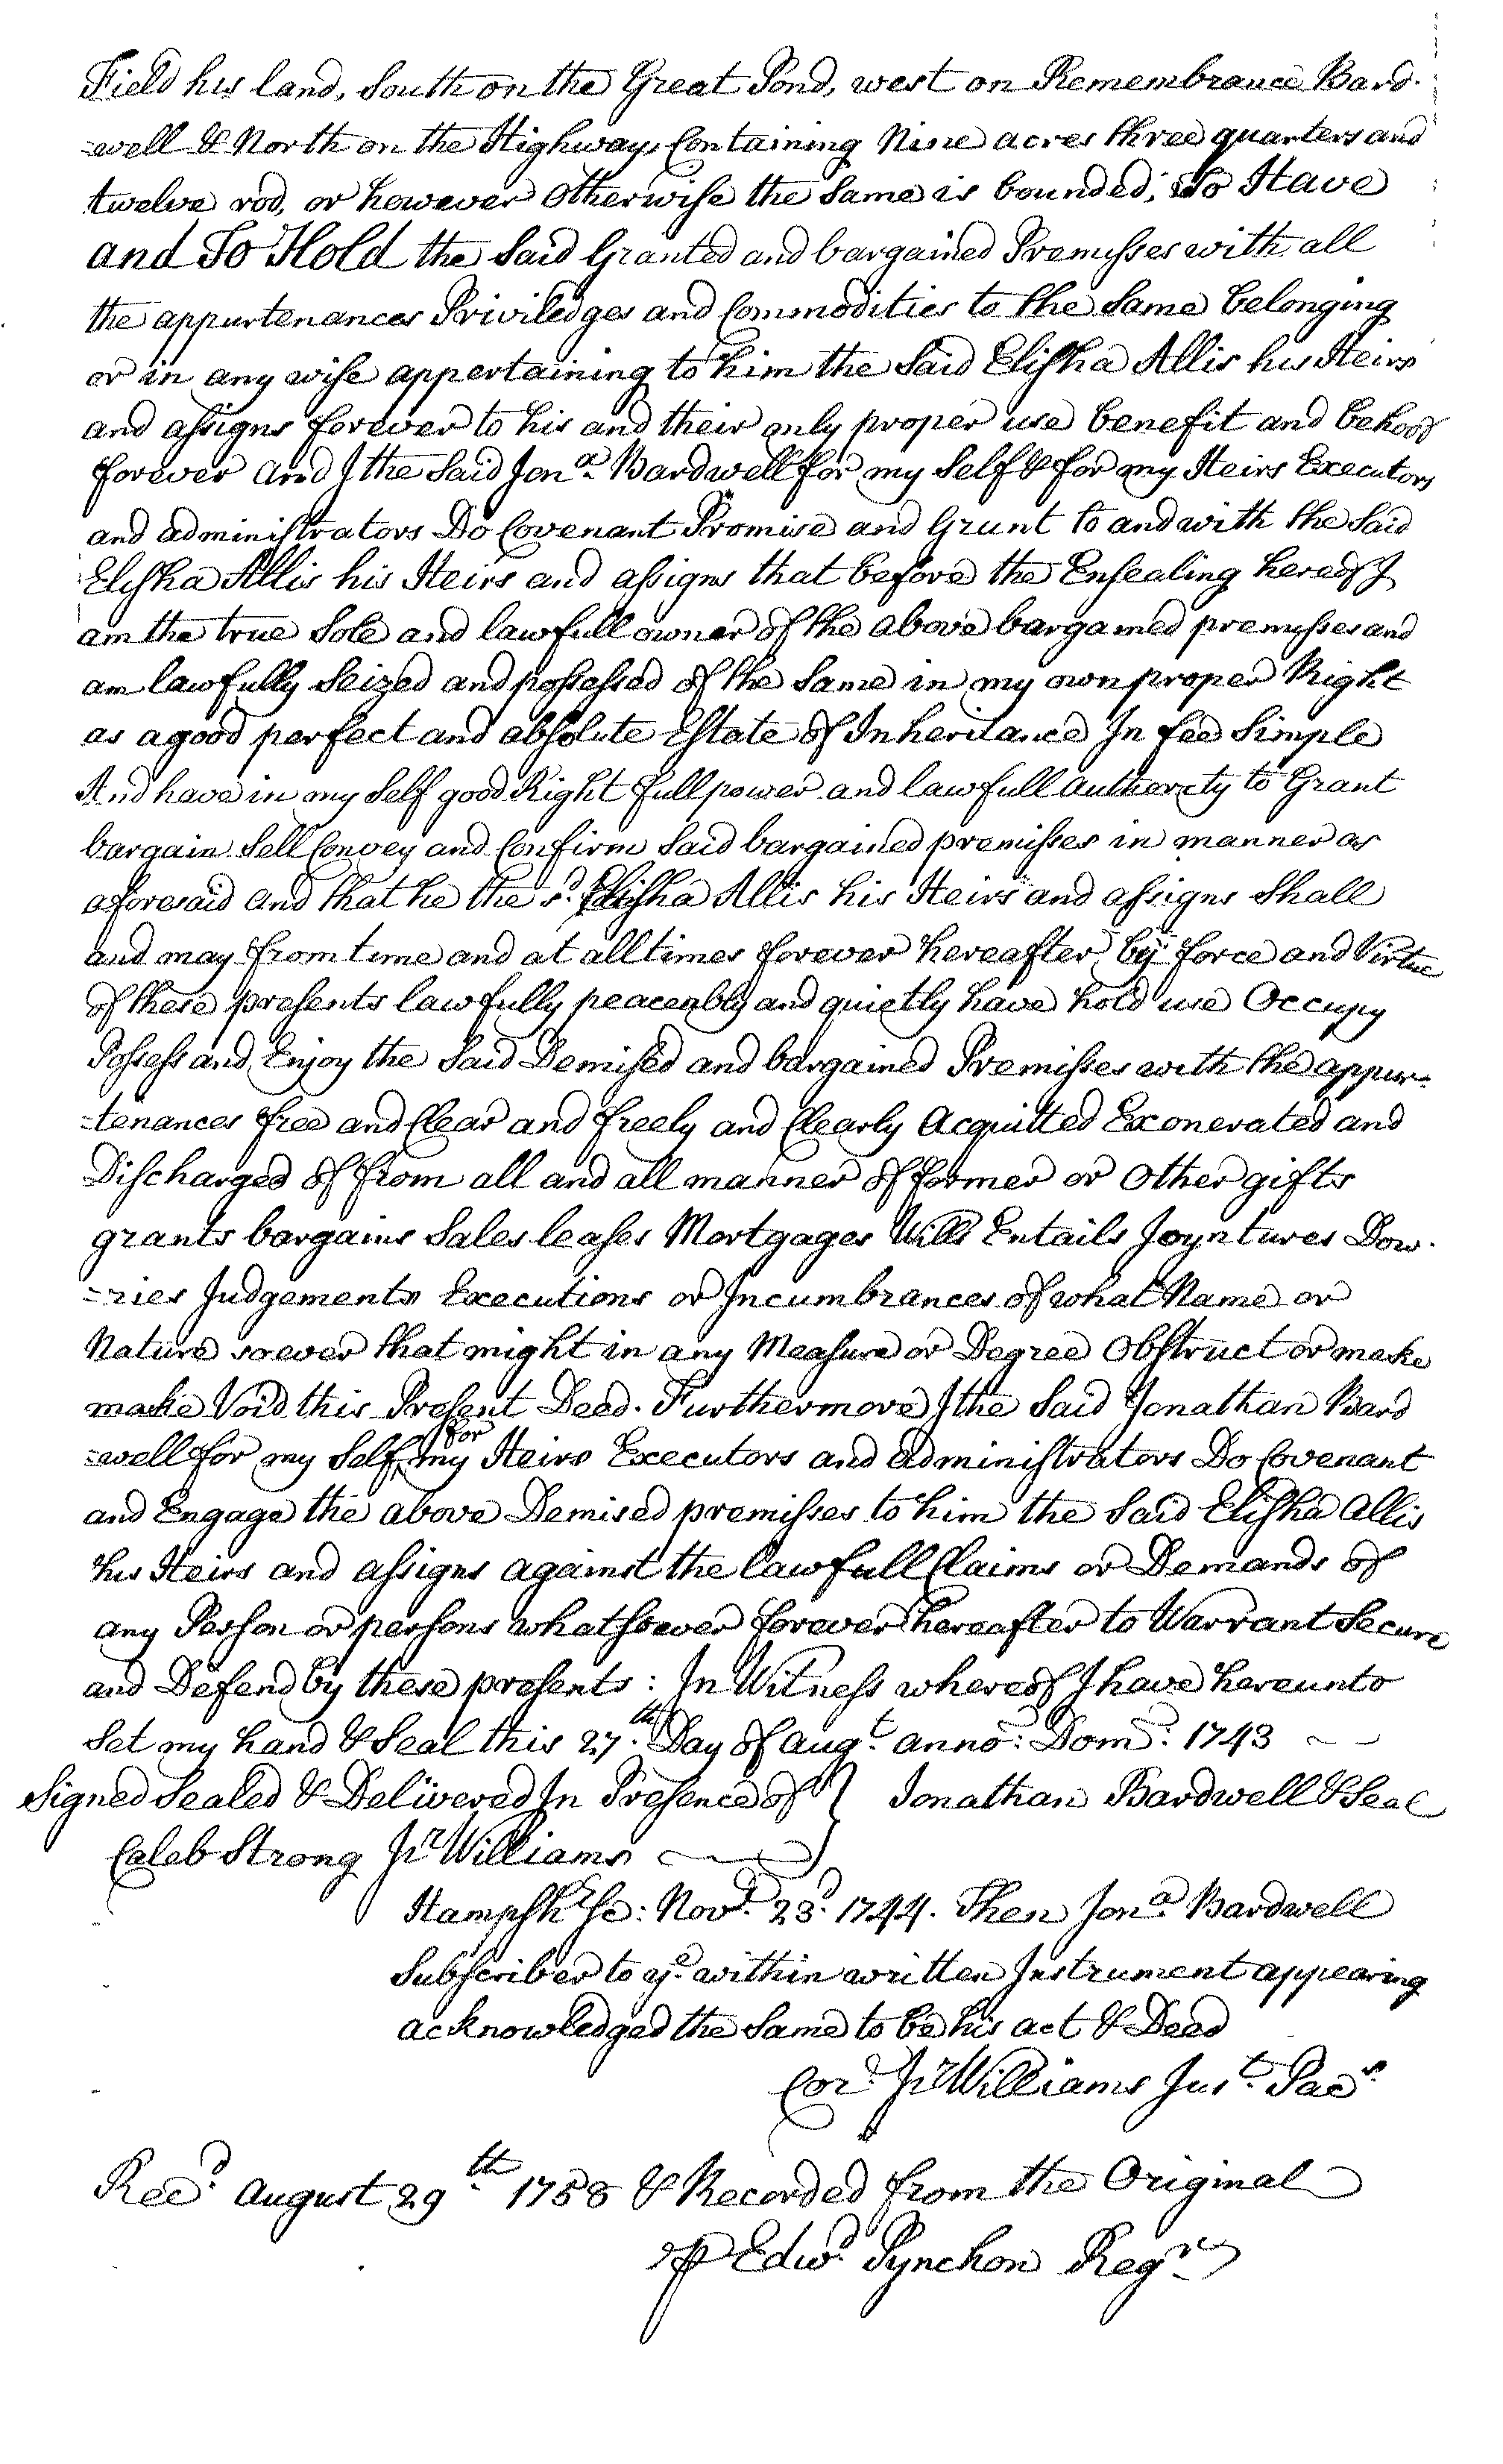 Field his land, South on the Great Pond, west on Remembrance Bard-
-well & North on the Highway, Containing Nine acres three quarters and
twelve rod, or however Otherwise the Same is bounded; To Have
and To Hold the Said Granted and bargained Premisses with all
the appurtenances Priviledges and Commodities to the Same belonging
or in any wise appertaining to him the Said Elisha Allis his Heirs
and assigns forever to his and their only proper use benefit and behoof
forever And I the Said Jona. Bardwell for my Self & for my Heirs Executors
and administrators Do Covenant Promise and Grant to and with the Said
Elisha Allis his Heirs and assigns that before the Ensealing hereof I
am the true Sole and lawfull owner of the above bargained premisses and
am lawfully Seized and possessed of the Same in my own proper Right
as a good perfect and absolute Estate of Inheritance In fee Simple
And have in my Self good Right full power and lawfull Authority to Grant
bargain Sell Convey and Confirm Said bargained premisses in manner as
aforesaid And that he the sd. Elisha Allis his Heirs and assigns Shall
and may from time and at all times forever hereafter by force and Virtue
of these presents lawfully peaceably and quietly have hold use Occupy
Possess and Enjoy the Said Demised and bargained Premisses with the appur-
-tenances free and Clear and freely and Clearly Acquitted Exonerated and
Discharged of from all and all manner of former or Other gifts
grants bargains Sales leases Mortgages Wills Entails Joyntures Dow-
-ries Judgements Executions or Incumbrances of what Name or
Nature soever that might in any Measure or Degree Obstruct or make
make Void this Present Deed. Furthermore I the Said Jonathan Bard
-well for my Self for my Heirs Executors and Administrators Do Covenant
and Engage the above Demised premisses to him the Said Elisha Allis
his Heirs and assigns against the lawfull Claims or Demands of
any Person or persons whatsoever forever hereafter to Warrant Secure
and Defend by these presents: In Witness whereof I have hereunto
Set my hand & Seal this 27.th Day of augt. anno: Dom: 1743
Signed Sealed & Delivered In Presence of } Jonathan Bardwell & Seal
Caleb Strong Jr Williams
Hampshr Sc: Novr. 23d. 1744. Then Jona. Bardwell
Subscriber to ye. within written Instrument appearing
acknowledged the Same to be his act & Deed
Cord. Jr Williams Just. Pacs.
Recd. August 29th. 1758 & Recorded from the Original
⅌ Edwd. Pynchon Regr.